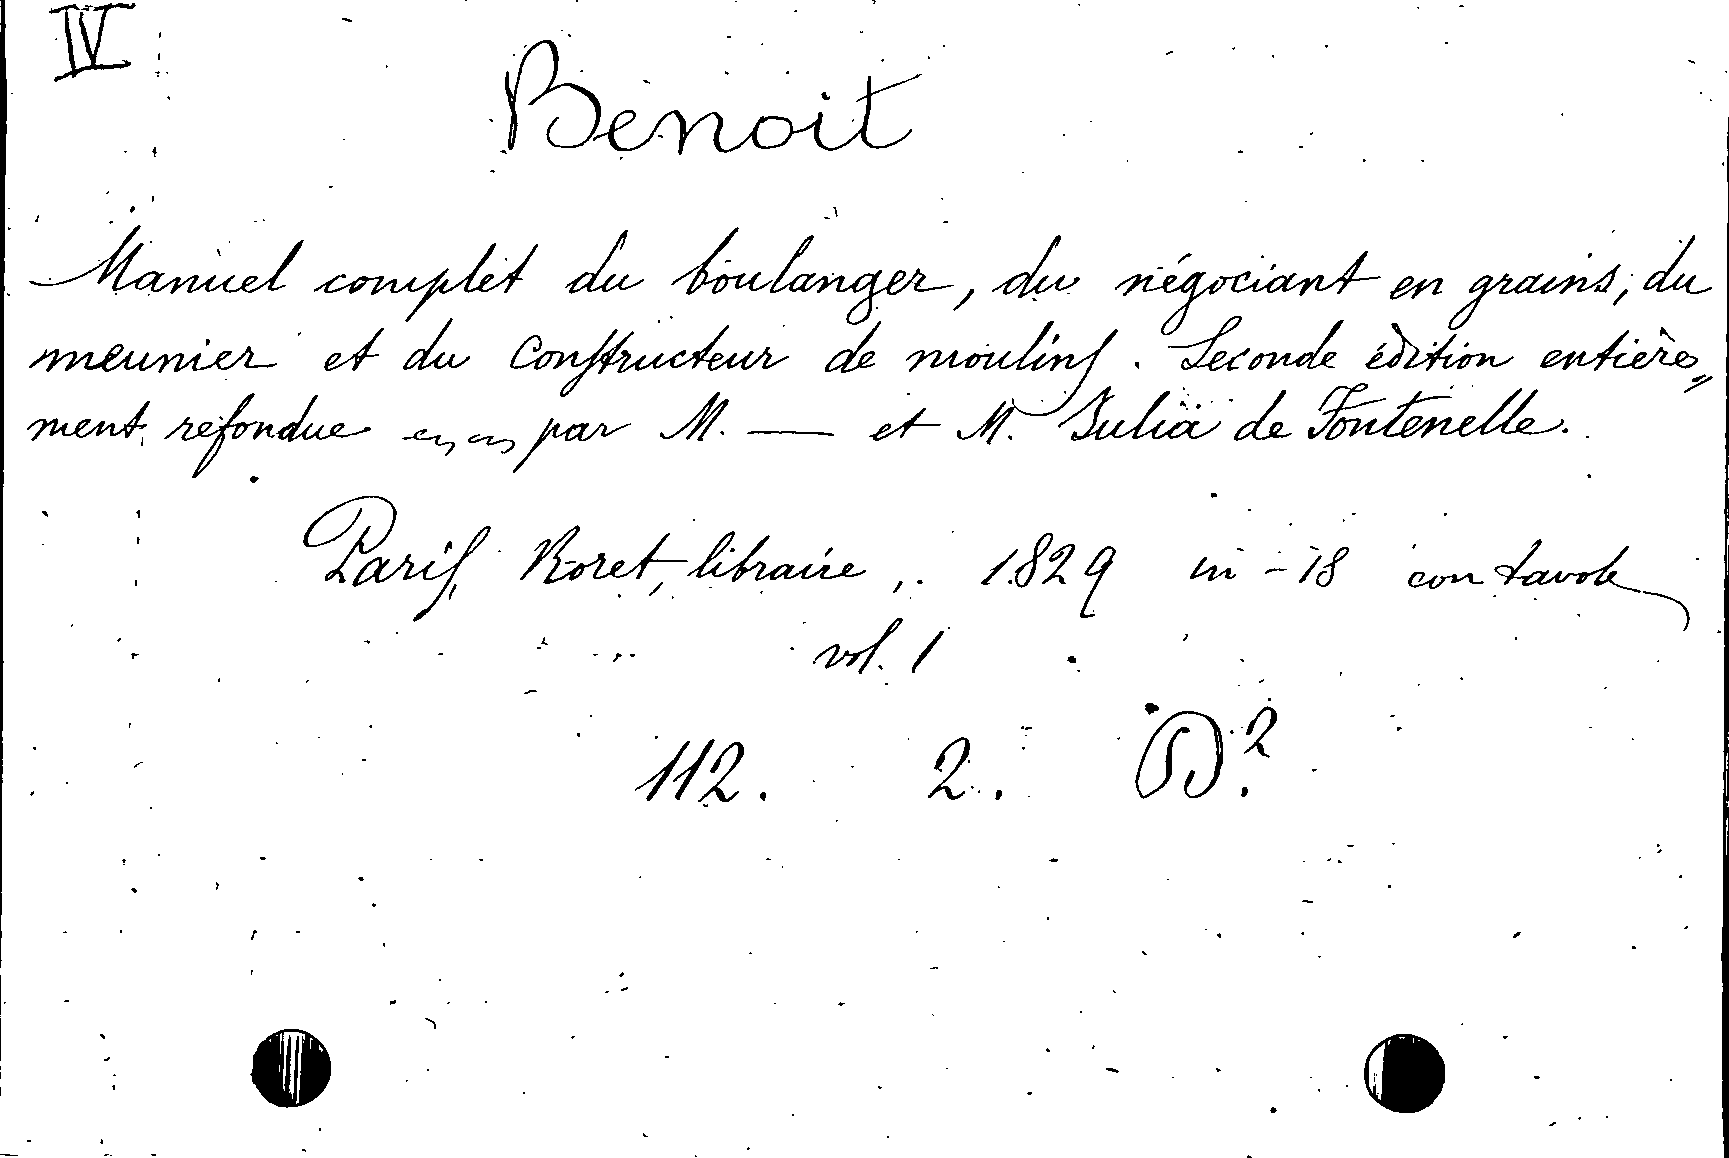 IV
Benoit
Manuel complet du boulanger, du négociant en grains, du
meunier et du constructeur de moulins. Seconde édition entière„
ment refondue par M. — et M. Julia de Fontenelle.
Paris, Roret, libraire, 1829 in-18 con tavole
vol. 1
112. 2. D.2